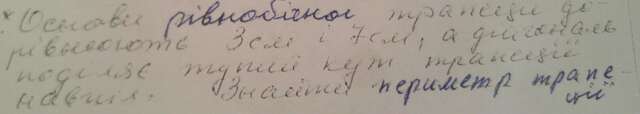 * Основи рівнобічної трапеції до-
рівнюють 3см і 7см, а діагональ
поділяє тупий кут трапеції
навпіл. Знайти периметр трапе-
ції